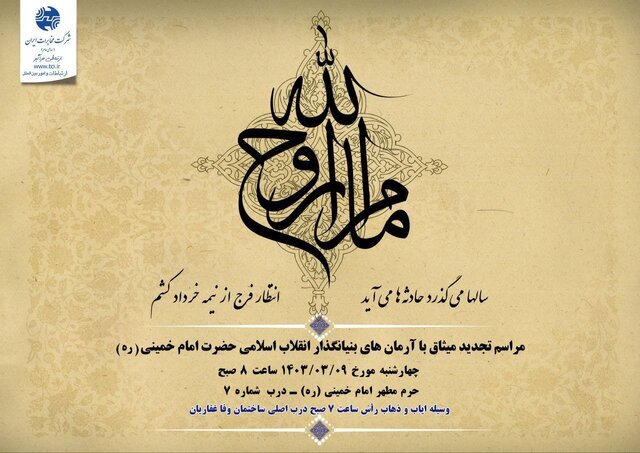 شرکت مخابرات ایران
(سهامی عام)
www.tci.ir
ارتباطات و امور بین الملل
امام روح الله
سالها می گذرد حادثه ها می آید انتظار فرج از نیمه خرداد کشم
مراسم تجدید میثاق با آرمان های بنیانگذار انقلاب اسلامی حضرت امام خمینی (ره)
چهارشنبه مورخ ۱۴۰۳/۰۳/۰۹ ساعت ۸ صبح
حرم مطهر امام خمینی (ره) ــ درب شماره ۷
وسیله ایاب و ذهاب رأس ساعت ۷ صبح درب اصلی ساختمان وفا غفاریان